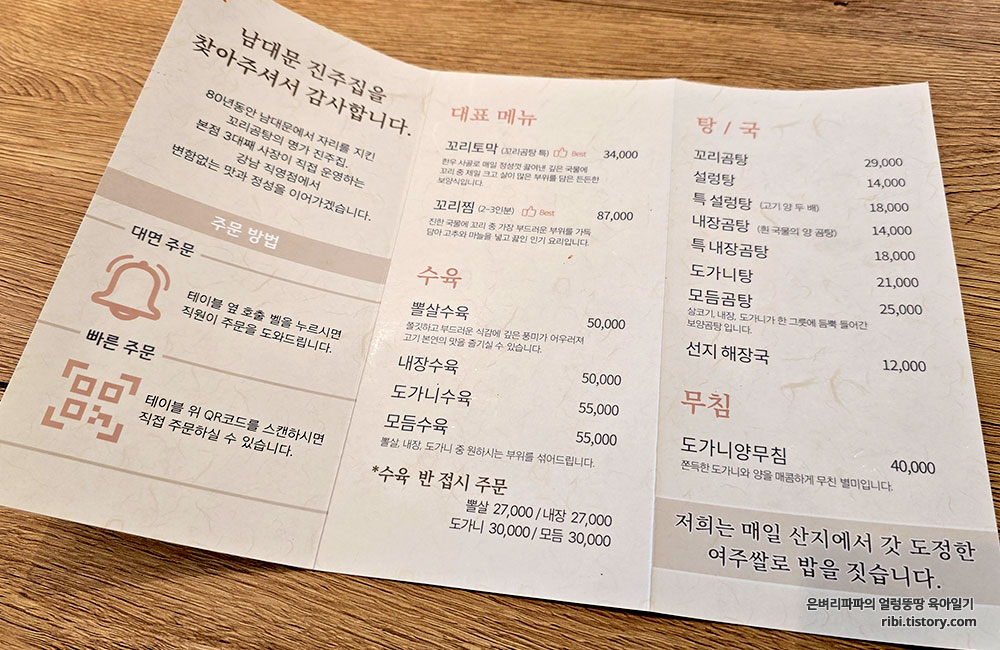 남대문 진주집을
찾아주셔서 감사합니다.
80년동안 남대문에서 자리를 지킨
꼬리곰탕의 명가 진주집.
본점 3대째 사장이 직접 운영하는
강남 직영점에서
변함없는 맛과 정성을 이어가겠습니다.
주문 방법
대면 주문
테이블 옆 호출 벨을 누르시면
직원이 주문을 도와드립니다.
빠른 주문
테이블 위 QR코드를 스캔하시면
직접 주문하실 수 있습니다.
대표 메뉴
꼬리토막 (꼬리곰탕 특) Best 34,000
한우 사골로 매일 정성껏 끓여낸 깊은 국물에
꼬리 중 제일 크고 살이 많은 부위를 담은 든든한
보양식입니다.
꼬리찜 (2-3인분) Best 87,000
진한 국물에 꼬리 중 가장 부드러운 부위를 가득
담아 고추와 마늘을 넣고 끓인 인기 요리입니다.
수육
뽈살수육 50,000
쫄깃하고 부드러운 식감에 깊은 풍미가 어우러져
고기 본연의 맛을 즐기실 수 있습니다.
내장수육 50,000
도가니수육 55,000
모듬수육 55,000
뽈살, 내장, 도가니 중 원하시는 부위를 섞어드립니다.
*수육 반 접시 주문
뽈살 27,000 / 내장 27,000
도가니 30,000 / 모듬 30,000
탕 / 국
꼬리곰탕 29,000
설렁탕 14,000
특 설렁탕 (고기 양 두 배) 18,000
내장곰탕 (흰 국물의 양 곰탕) 14,000
특 내장곰탕 18,000
도가니탕 21,000
모듬곰탕 25,000
소코기, 내장, 도가니가 한 그릇에 듬뿍 들어간
보양곰탕 입니다.
선지 해장국 12,000
무침
도가니양무침 40,000
쫀득한 도가니와 양을 매콤하게 무친 별미입니다.
저희는 매일 산지에서 갓 도정한
여주쌀로 밥을 짓습니다.
은벼리파파의 얼렁뚱땅 육아일기
ribi.tistory.com